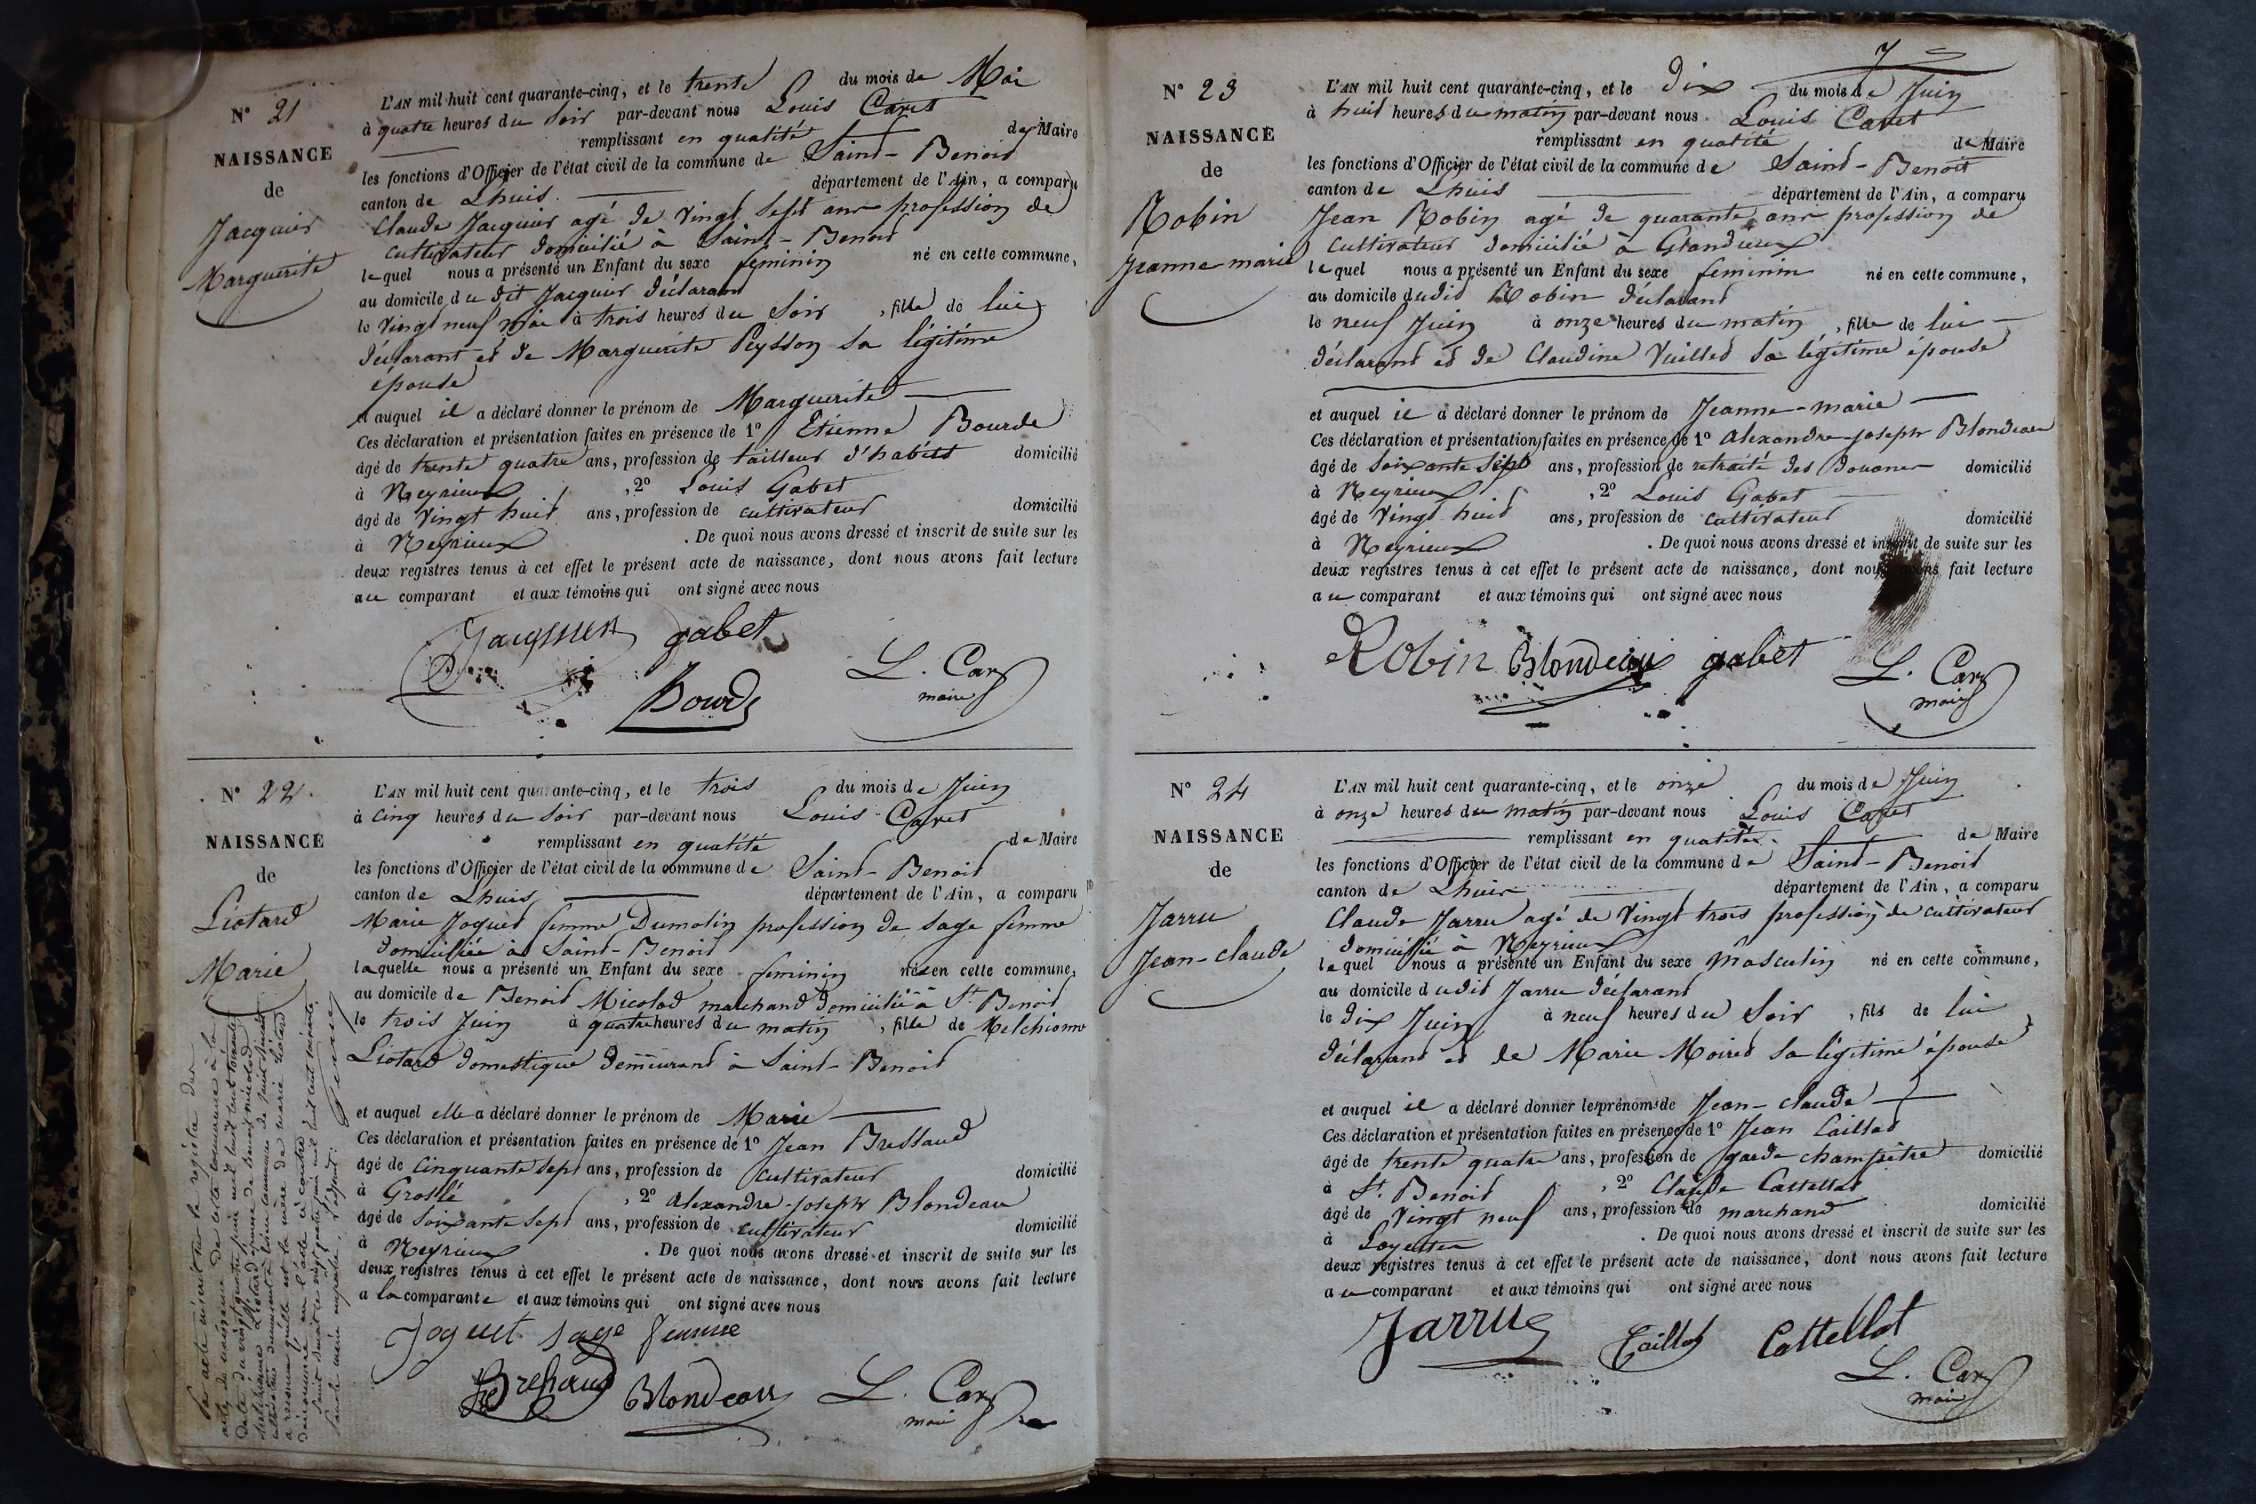 N° 21
NAISSANCE
de
Jacquier
Marguerite
L'AN mil huit cent quarante-cinq, et le trente du mois de Mai
à quatre heures du soir par-devant nous Louis Caret
remplissant en qualité de Maire
les fonctions d'Officier de l'état civil de la commune de Saint-Benoit
canton de Lhuis département de l'Ain, a comparu
Claude Jacquier agé de vingt sept ans profession de
cultivateur domicilié à Saint-Benoit
lequel nous a présenté un Enfant du sexe feminin né en cette commune,
au domicile du dit Jacquier déclarant
le vingt neuf mai à trois heures du soir, fille de lui
déclarant et de Marguerite Peysson sa légitime
épouse
et auquel il a déclaré donner le prénom de Marguerite
Ces déclaration et présentation faites en présence de 1° Etienne Bourde
âgé de trente quatre ans, profession de tailleur d'habits domicilié
à Neyrieux, 2° Louis Gabet
âgé de vingt huit ans, profession de cultivateur domicilié
à Neyrieux. De quoi nous avons dressé et inscrit de suite sur les
deux registres tenus à cet effet le présent acte de naissance, dont nous avons fait lecture
au comparant et aux témoins qui ont signé avec nous
Jacquier gabet
Bourde
L. Car
maire
N° 22
NAISSANCE
de
Liotard
Marie
L'AN mil huit cent quarante-cinq, et le trois du mois de Juin
à cinq heures du soir par-devant nous Louis Caret
remplissant en qualité de Maire
les fonctions d'Officier de l'état civil de la commune de Saint-Benoit
canton de Lhuis département de l'Ain, a comparu
Marie Joguet femme Dumolin profession de sage femme
domiciliée à Saint-Benoit
laquelle nous a présenté un Enfant du sexe feminin né en cette commune,
au domicile de Benoit Micolod marchand domicilié à St Benoit
le trois Juin à quatre heures du matin, fille de Melchionne
Liotard domestique demeurant à Saint-Benoit
et auquel elle a déclaré donner le prénom de Marie
Ces déclaration et présentation faites en présence de 1° Jean Bressaud
âgé de cinquante sept ans, profession de cultivateur domicilié
à Groslé, 2° alexandre-joseph Blondeau
âgé de soixante sept ans, profession de cultivateur domicilié
à Neyrieux. De quoi nous avons dressé et inscrit de suite sur les
deux registres tenus à cet effet le présent acte de naissance, dont nous avons fait lecture
a la comparante et aux témoins qui ont signé avec nous
Joguet sage femme
Bressaud Blondeau L. Car
maire
Par acte inscrit sur le registre des
actes de naissance de cette commune à la
7
N° 23
NAISSANCE
de
Robin
Jeanne marie
L'AN mil huit cent quarante-cinq, et le dix du mois de Juin
à huit heures du matin par-devant nous Louis Caret
remplissant en qualité de Maire
les fonctions d'Officier de l'état civil de la commune de Saint-Benoit
canton de Lhuis département de l'Ain, a comparu
Jean Robin agé de quarante ans profession de
cultivateur domicilié à Glandieux
lequel nous a présenté un Enfant du sexe feminin né en cette commune,
au domicile dudit Robin déclarant
le neuf Juin à onze heures du matin, fille de lui
déclarant et de Claudine Vuillet sa légitime épouse
et auquel il a déclaré donner le prénom de Jeanne-marie
Ces déclaration et présentation faites en présence de 1° alexandre-joseph Blondeau
âgé de soixante sept ans, profession de retraité des douanes domicilié
à Neyrieux, 2° Louis Gabet
âgé de vingt huit ans, profession de cultivateur domicilié
à Neyrieux. De quoi nous avons dressé et inscrit de suite sur les
deux registres tenus à cet effet le présent acte de naissance, dont nous avons fait lecture
au comparant et aux témoins qui ont signé avec nous
Robin Blondeau gabet L. Car
maire
N° 24
NAISSANCE
de
Jarru
Jean-claude
L'AN mil huit cent quarante-cinq, et le onze du mois de Juin
à onze heures du matin par-devant nous Louis Caret
remplissant en qualité de Maire
les fonctions d'Officier de l'état civil de la commune de Saint-Benoit
canton de Lhuis département de l'Ain, a comparu
Claude Jarru agé de vingt trois profession de cultivateur
domicilié à Neyrieux
lequel nous a présenté un Enfant du sexe masculin né en cette commune,
au domicile dudit Jarru déclarant
le dix Juin à neuf heures du soir, fils de lui
déclarant et de Marie Moiret sa légitime épouse
et auquel il a déclaré donner les prénoms de Jean-claude
Ces déclaration et présentation faites en présence de 1° Jean Caillat
âgé de trente quatre ans, profession de garde champêtre domicilié
à St. Benoit, 2° Claude Cattellat
âgé de vingt neuf ans, profession de marchand domicilié
à Loyettes. De quoi nous avons dressé et inscrit de suite sur les
deux registres tenus à cet effet le présent acte de naissance, dont nous avons fait lecture
au comparant et aux témoins qui ont signé avec nous
Jarru Caillat Cattellat
L. Car
maire